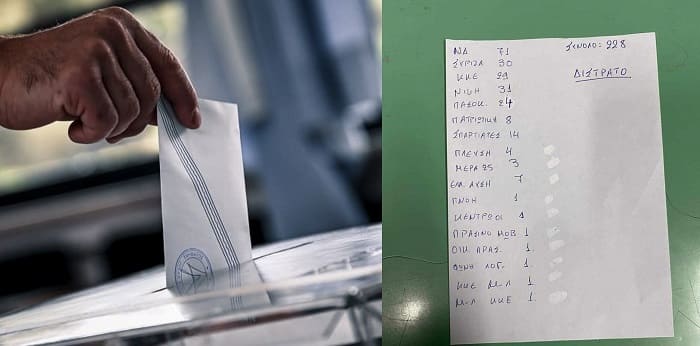 ΝΔ 71
ΣΥΡΙΖΑ 30
ΚΚΕ 29
ΝΙΚΗ 31
ΠΑΣΟΚ. 24
ΠΑΤΡΙΩΤΙΚΗ 8
ΣΠΑΡΤΙΑΤΕΣ 14
ΠΛΕΥΣΗ 4
ΜΕΡΑ 25 3
ΕΛ. ΛΥΣΗ 7
ΠΝΟΗ 1
ΚΕΝΤΡΩΟΙ 1
ΠΡΑΣΙΝΟ ΜΩΒ 1
ΟΙΚ. ΠΡΑΣ. 1.
ΦΩΝΗ ΛΟΓ. 1.
ΚΚΕ Μ-Λ 1
Μ-Λ ΚΚΕ 1.
ΣΥΝΟΛΟ: 228
ΔΙΣΤΡΑΤΟ